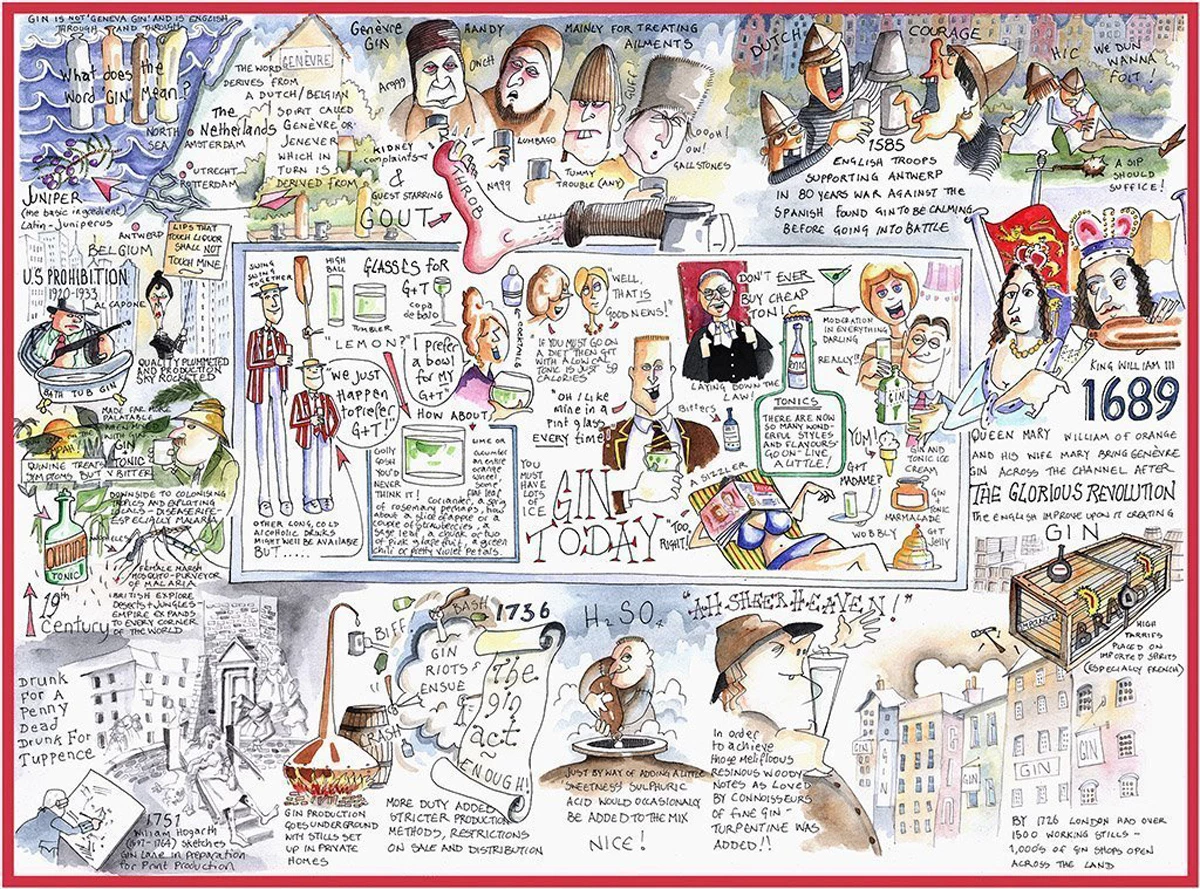 GIN IS NOT 'GENEVA GIN' AND IS ENGLISH
THROUGH AND THROUGH
What does the
word 'GIN' Mean?
NORTH
SEA
JUNIPER
(the basic ingredient)
Latin - Juniperus
THE WORD
GENÈVRE
DERIVES FROM
A DUTCH/BELGIAN
SPIRIT CALLED
GENÈVRE OR
JENEVER
WHICH IN
TURN IS
DERIVED FROM
The
Netherlands
AMSTERDAM
UTRECHT
ROTTERDAM
ANTWERP
BELGIUM
Genèvre
GIN
HANDY
MAINLY FOR TREATING
AILMENTS
OUCH
LUMBAGO
KIDNEY
complaints
&
GUEST STARRING
GOUT
THROB
TUMMY
TROUBLE (ANY)
OOOH!
OW!
GALLSTONES
DUTCH
COURAGE
HIC
WE DUN
WANNA
FOIT!
1585
ENGLISH TROOPS
SUPPORTING ANTWERP
IN 80 YEARS WAR AGAINST THE
SPANISH FOUND GIN TO BE CALMING
BEFORE GOING INTO BATTLE
A SIP
SHOULD
SUFFICE!
KING WILLIAM III
1689
QUEEN MARY
WILLIAM OF ORANGE
AND HIS WIFE MARY BRING GENÈVRE
GIN ACROSS THE CHANNEL AFTER
THE GLORIOUS REVOLUTION
THE ENGLISH IMPROVE UPON IT CREATING
GIN
HIGH
TARRIFS
PLACED ON
IMPORTED SPIRITS
(ESPECIALLY FRENCH)
GIN
GIN
GIN
GIN
GIN
BY 1726 LONDON HAD OVER
1500 WORKING STILLS -
1,000'S OF GIN SHOPS OPEN
ACROSS THE LAND
"AH SHEER HEAVEN!"
In order
to achieve
those mellifluous
RESINOUS WOODY
NOTES AS LOVED
BY CONNOISSEURS
OF FINE GIN -
TURPENTINE WAS
ADDED!!
H2SO4
JUST BY WAY OF ADDING A LITTLE
'SWEETNESS' SULPHURIC
ACID WOULD OCCASIONALLY
BE ADDED TO THE MIX
NICE!
1736
BASH
BIFF
GIN
RIOTS
ENSUE
CRASH
The
gin
act
ENOUGH!
MORE DUTY ADDED
STRICTER PRODUCTION
METHODS, RESTRICTIONS
ON SALE AND DISTRIBUTION
GIN PRODUCTION
GOES UNDERGROUND
WITH STILLS SET
UP IN PRIVATE
HOMES
DRUNK
FOR A
PENNY
DEAD
DRUNK FOR
TUPPENCE
1751
William Hogarth
(1697-1764) sketches
Gin Lane in preparation
for Print Production
19th
Century
BRITISH EXPLORE
Deserts + JUNGLES -
EMPIRE EXPANDS
TO EVERY CORNER
OF THE WORLD
FEMALE MARSH
MOSQUITO - PURVEYOR
OF MALARIA
DOWNSIDE TO COLONISING
TROPICS AND EXPLOITING
LOCALS - DISEASE RIFE -
ESPECIALLY MALARIA
QUININE
TONIC
QUININE TREATS
SYMPTOMS BUT V BITTER
MADE FAR MORE
PALATABLE
WHEN MIXED
WITH GIN
GIN
TONIC
U.S PROHIBITION
1920-1933
AL CAPONE
BATH TUB GIN
LIPS THAT
TOUCH LIQUOR
SHALL NOT
TOUCH MINE
QUALITY PLUMMETED
AND PRODUCTION
SKY ROCKETED
SWING
SWING
TOGETHER
HIGH
BALL
TUMBLER
GLASSES FOR
G+T
copa
de balo
COCKTAILS
"LEMON?"
"I prefer
a bowl
for MY
G+T"
"WE JUST
HAPPEN
TO PREFER
G+T!"
OTHER LONG, COLD
ALCOHOLIC DRINKS
MIGHT WELL BE AVAILABLE
BUT.....
HOW ABOUT
GOLLY
GOSH YOU'D
NEVER
THINK IT!
LIME OR
cucumber
an entire
orange
wheel,
some
flat leaf
coriander, a sprig
of rosemary perhaps, how
about a slice of apple or a
couple of strawberries, a
sage leaf, a chunk or two
of pink grapefruit, a green
chili or pretty violet petals.
YOU
MUST
HAVE
LOTS
OF
ICE
"WELL,
THAT IS
GOOD NEWS!"
"IF YOU MUST GO ON
A DIET THEN GIN
WITH A LOW CAL
TONIC IS JUST 59
CALORIES"
"OH I LIKE
mine in a
pint glass
EVERY time!"
GIN
TODAY
DON'T EVER
BUY CHEAP
TONIC!
LAYING DOWN THE
LAW!
Bitters
TONIC
TONICS
THERE ARE NOW
SO MANY WOND-
ERFUL STYLES
AND FLAVOURS
GO ON - LIVE
A LITTLE!
MODERATION
IN EVERYTHING
DARLING
REALLY!!
GIN
YUM!
GIN AND
TONIC ICE
CREAM
G+T
MADAME?
GIN
TONIC
MARMALADE
WOBBLY
G+T
Jelly
A SIZZLER
"TOO
RIGHT!"